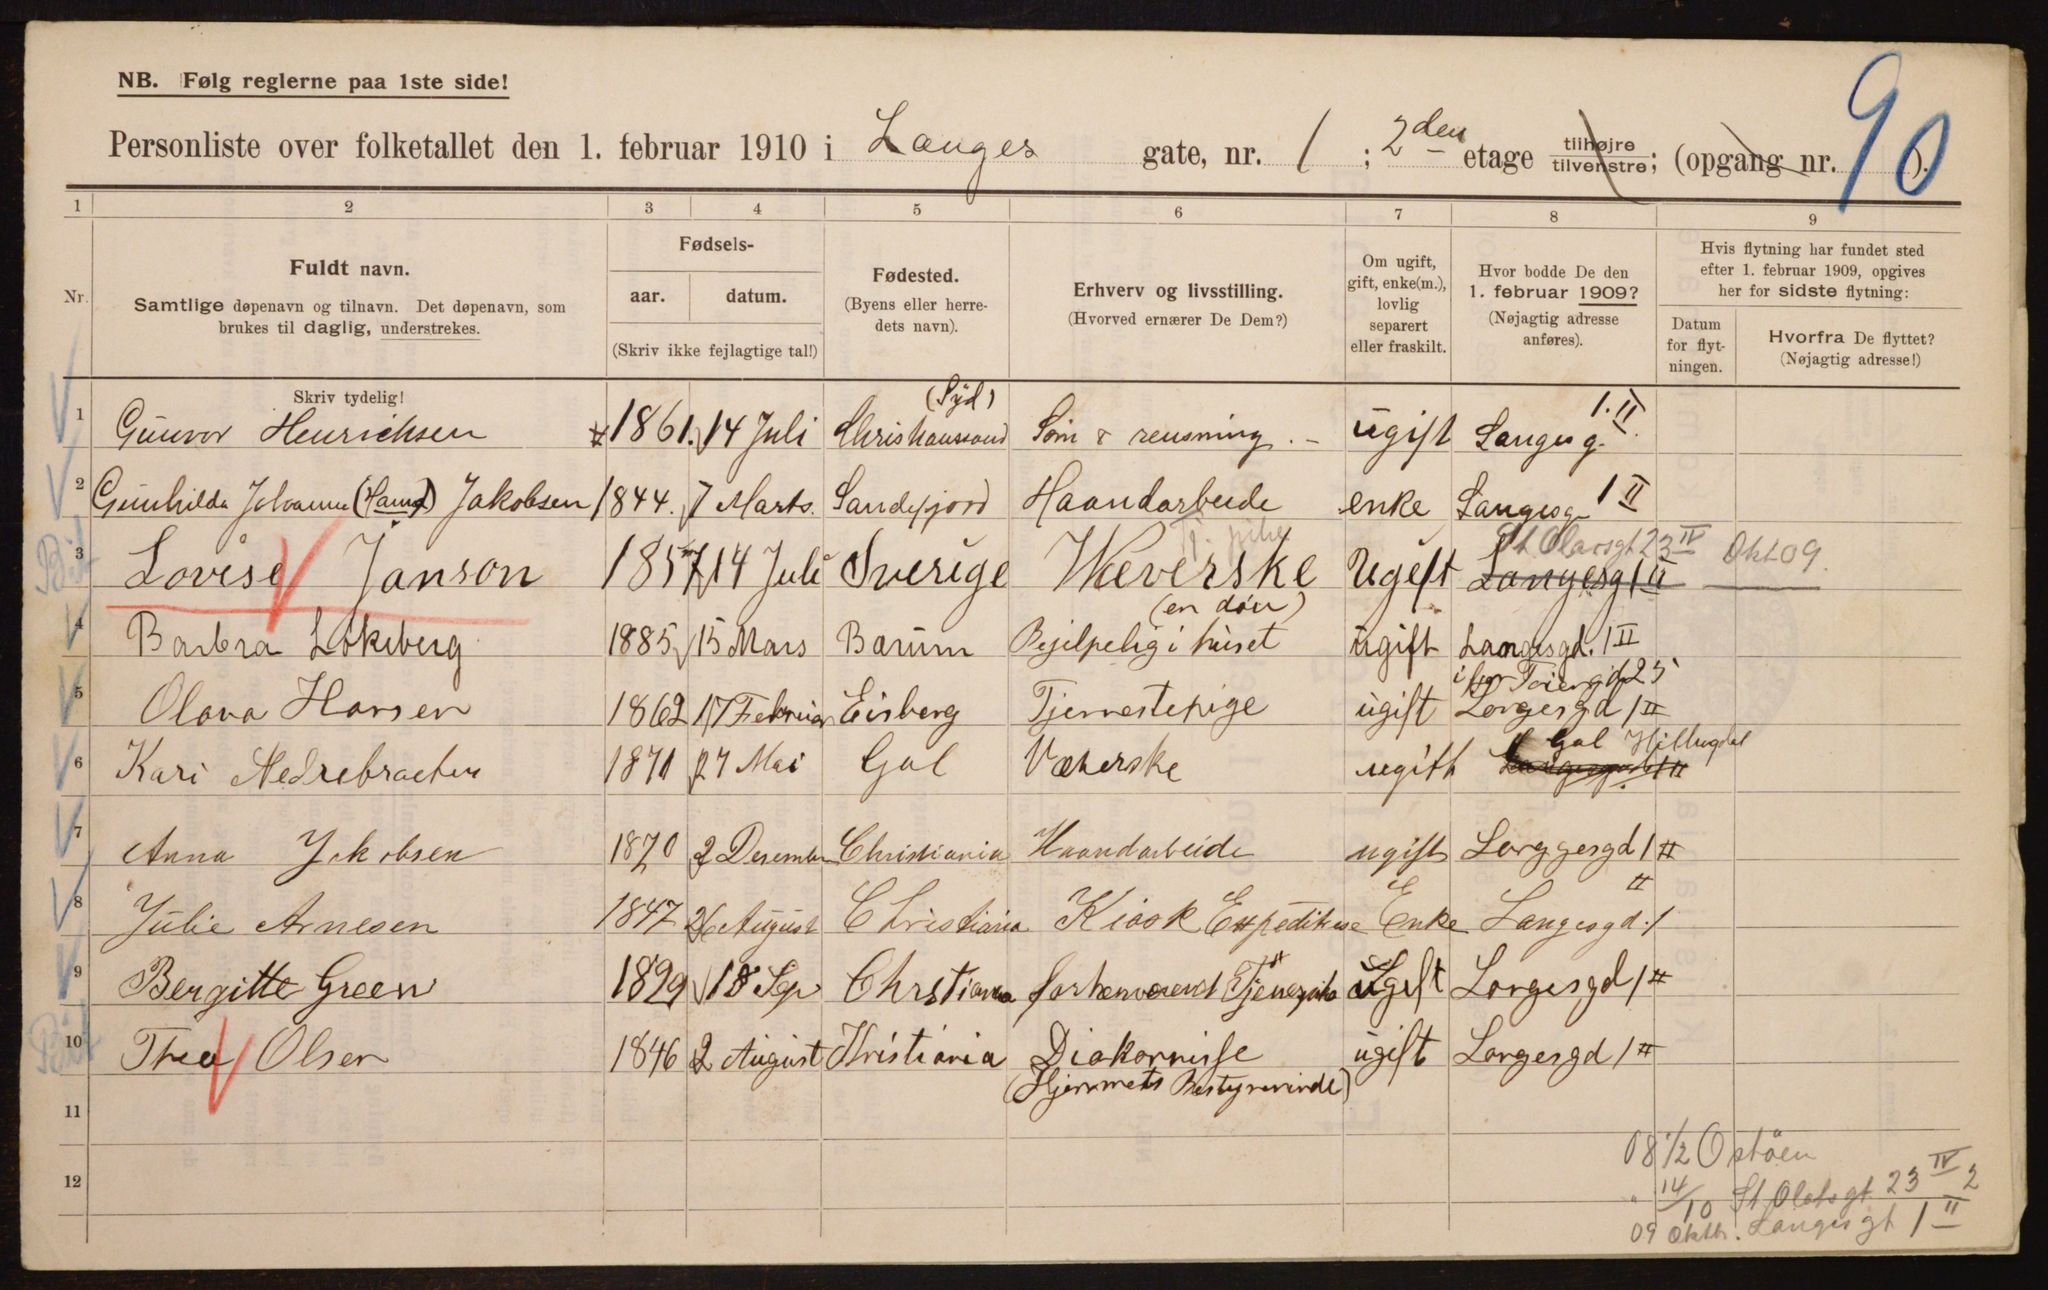 NB. Følg reglerne paa 1ste side!
90
Personliste over folketallet den 1. februar 1910 i Langes gate, nr. 1 ; 2den etage tilhøjre tilvenstre; (opgang nr. ).
1 2 3 4 5 6 7 8 9
Nr. Fuldt navn. Samtlige døpenavn og tilnavn. Det døpenavn, som brukes til daglig, understrekes.
Skriv tydelig!
Fødsels-
aar. datum.
(Skriv ikke fejlagtige tal!)
Fødested. (Byens eller herredets navn).
Erhverv og livsstilling. (Hvorved ernærer De Dem?)
Om ugift, gift, enke(m.), lovlig separert eller fraskilt.
Hvor bodde De den 1. februar 1909? (Nøjagtig adresse anføres).
Hvis flytning har fundet sted efter 1. februar 1909, opgives her for sidste flytning:
Datum for flytningen.
Hvorfra De flyttet? (Nøjagtig adresse!)
1 Gunvor Henrichsen 1861. 14 Juli Christianssand (Syd) Søm & rensning. ugift Langesg. 1. II
2 Gunhilda Johanne (Hansd) Jakobsen 1844. 7 Marts. Sandefjord Haandarbeide enke Langesg 1 II
Bit 3 Lovise Janson 1857 14 Juli Sverige Wæverske Ugift St Olavsgt 23 IV Langesg 1 II Okt 09.
4 Barbra Løkeberg 1885 15 Mars Bærum (en døv) Behjelpelig i huset ugift Langesgd. 1 II
5 Olava Hansen 1862 17 Februar Eisberg Tjenestepige ugift Langesgd 1 II
6 Kari Nedrebraaten 1871 27 Mai Gol Væverske ugift Gol Hallingdal Langesgd 1 II
7 Anna Jakobsen 1870 2 Desember Christiania Haandarbeide ugift Langgesgd 1 II
8 Julie Arnesen 1847 26 August Christiania Kiosk Expeditrise Enke Langesgd. 1 II
9 Bergitte Green 1829 18 Sep Chrstiania forhenværend Tjenepike ugift Langesgd 1 II
Bit 10 Thea Olsen 1846 2 August Kristiania Diakonnisse ugift Langesgd 1 II
(Hjemmets Bestyrerinde)
11
08 1/2 Ostøen
12
" 14/10 St Olafsgt 23 IV 2
09 Oktbr. Langes gt 1 II